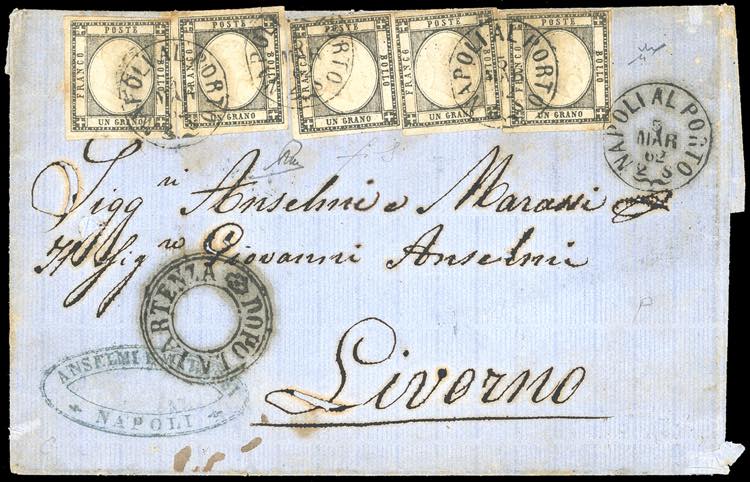 FRANCO POSTE BOLLO UN GRANO
FRANCO POSTE BOLLO UN GRANO
FRANCO POSTE BOLLO UN GRANO
FRANCO POSTE BOLLO UN GRANO
FRANCO POSTE BOLLO UN GRANO
NAPOLI AL PORTO
NAPOLI AL PORTO
NAPOLI AL PORTO
5
MAR
62
2 S
Sigg ri Anselmi e Marassi
Giovanni Anselmi
DOPO LA PARTENZA
Livorno
ANSELMI
NAPOLI